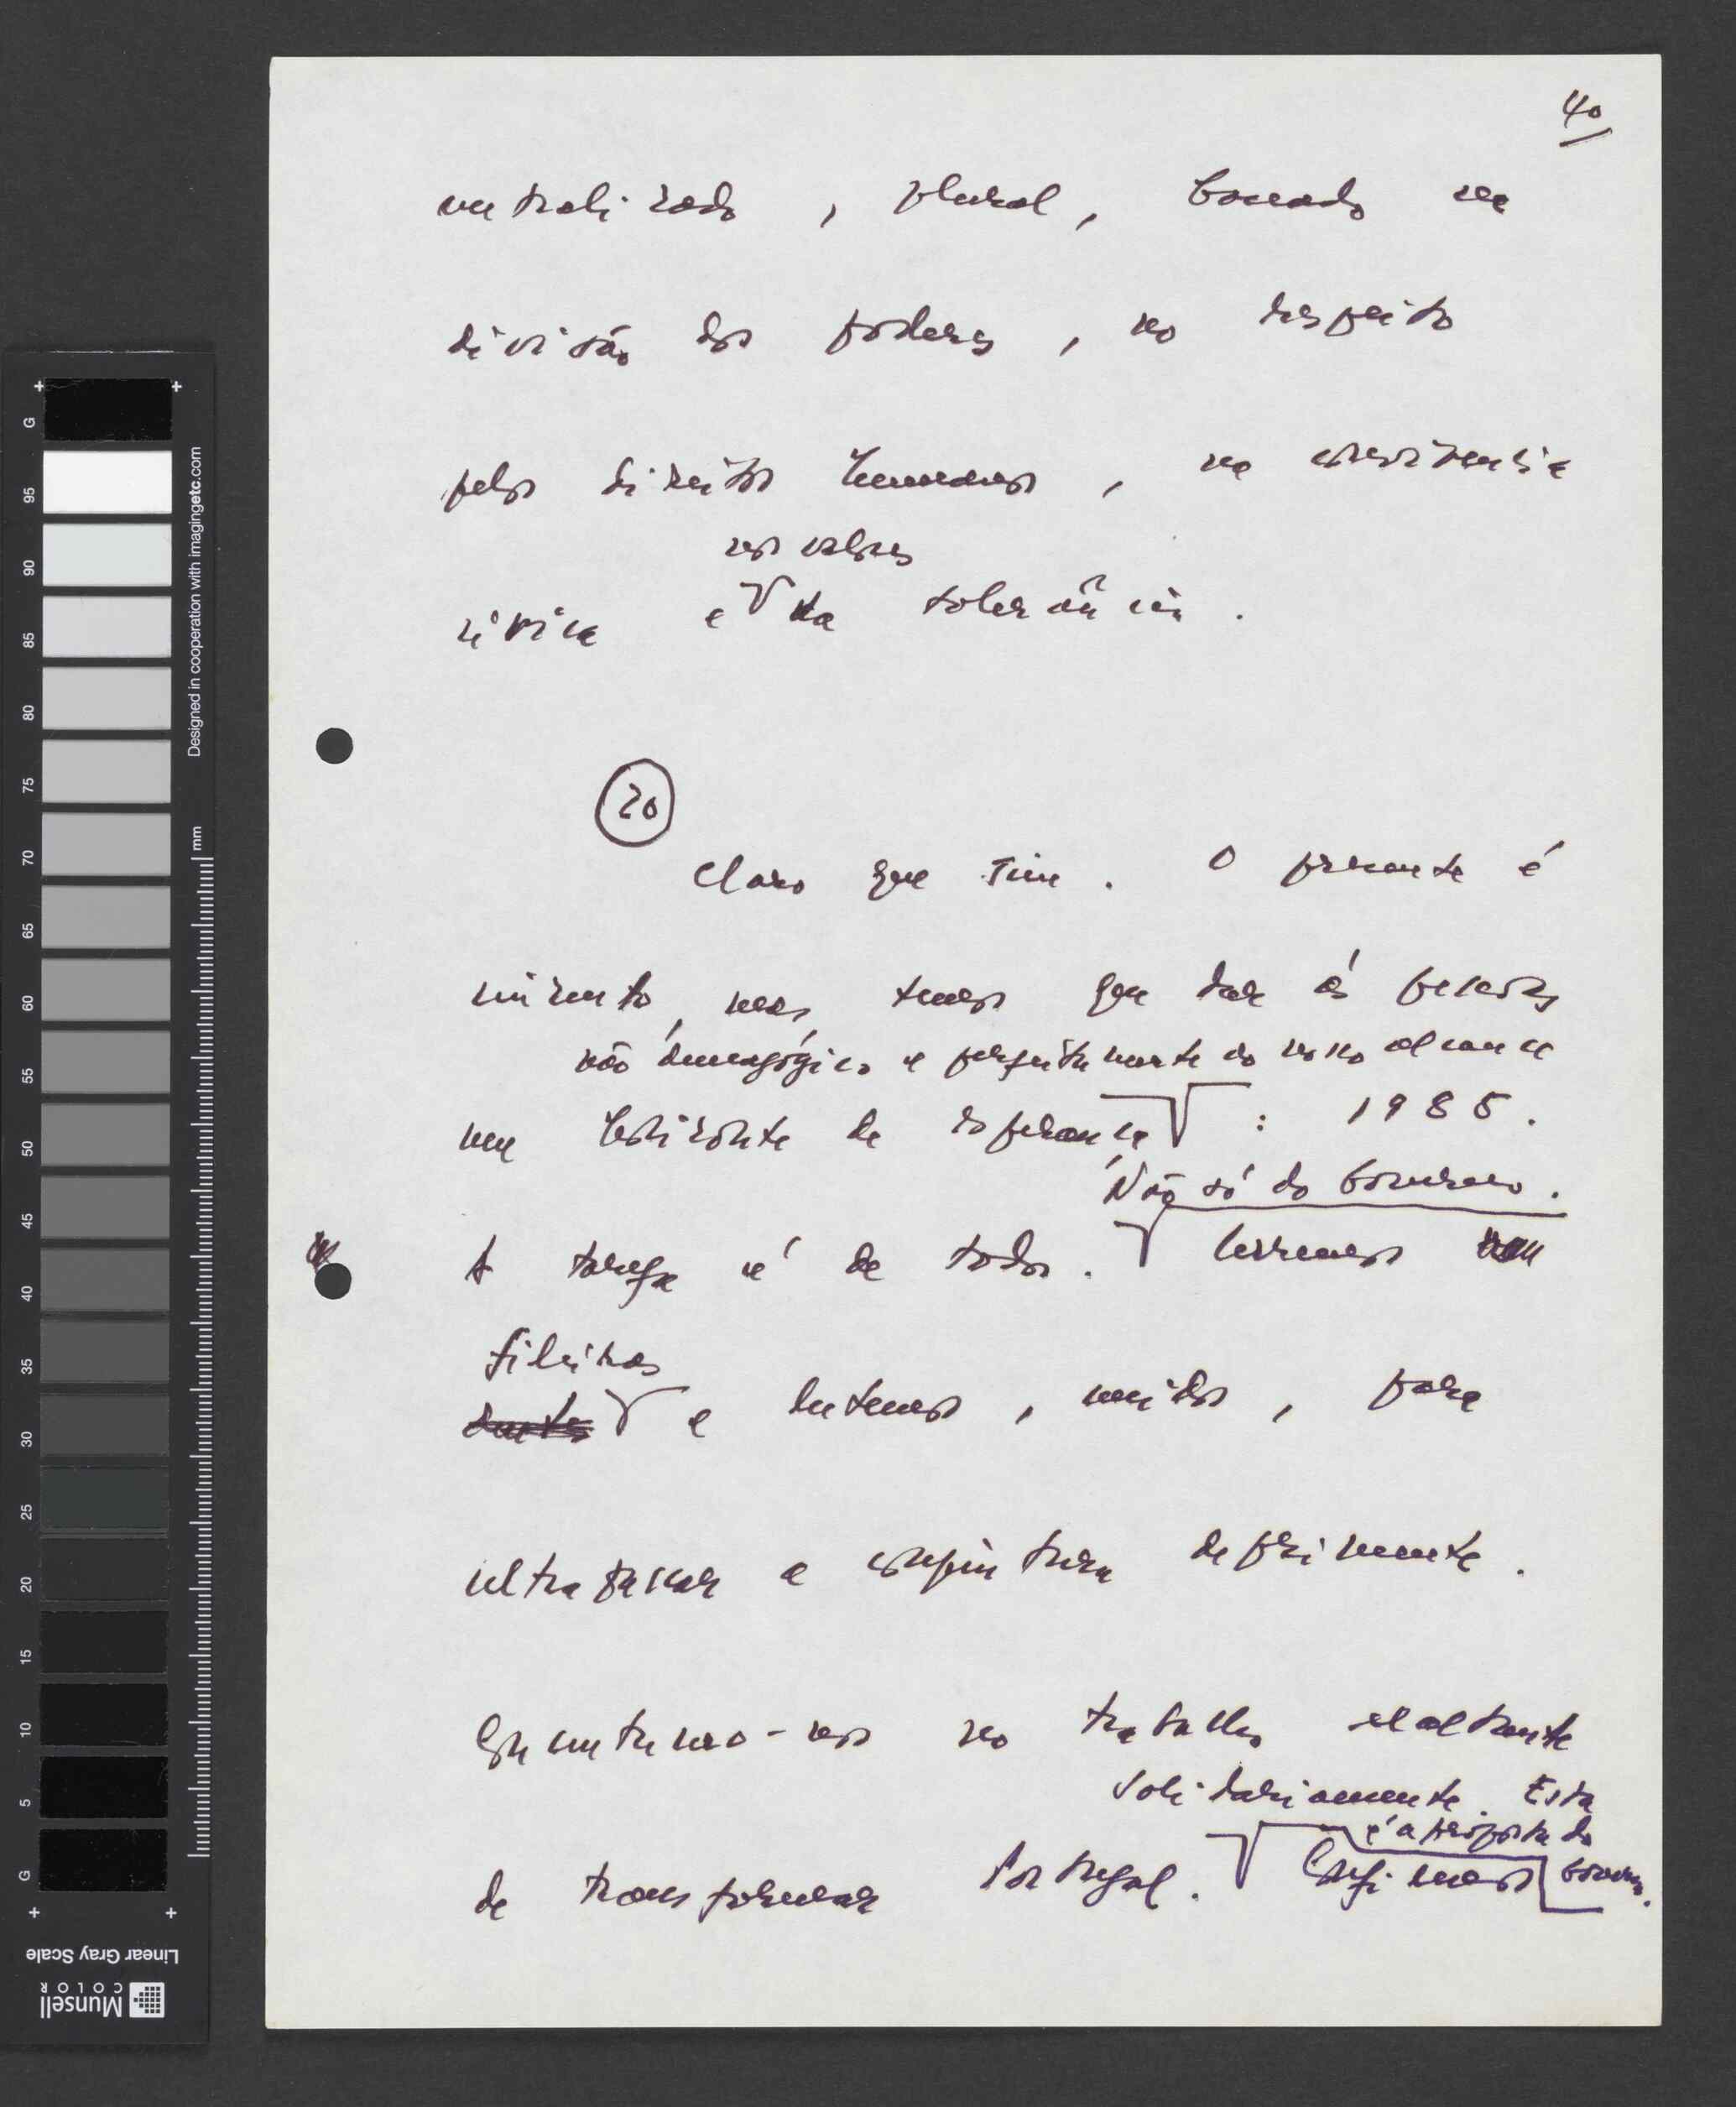 40
centralizado, plural, baseado na
divisão dos poderes, no respeito
pelos direitos humanos, na consciência
nos valores
cívica e da tolerância.
20
Claro que sim. O presente é
cinzento, mas, temos que dar às pessoas
não demagógico e perfeitamente ao nosso alcance
um horizonte de esperança: 1985.
Não só do Governo.
A tarefa é de todos. Cerremos
fileiras
e lutemos, unidos, para
ultrapassar a conjuntura deprimente.
Concentremo-nos no trabalho exaltante
solidariamente. Esta
é a proposta do
de transformar Portugal. Confiemos Governo.
G
95
90
85
80
75
70
65
60
55
50
45
40
35
30
25
20
15
10
5
G
mm
Designed in cooperation with imagingetc.com
Linear Gray Scale
Munsell
COLOR